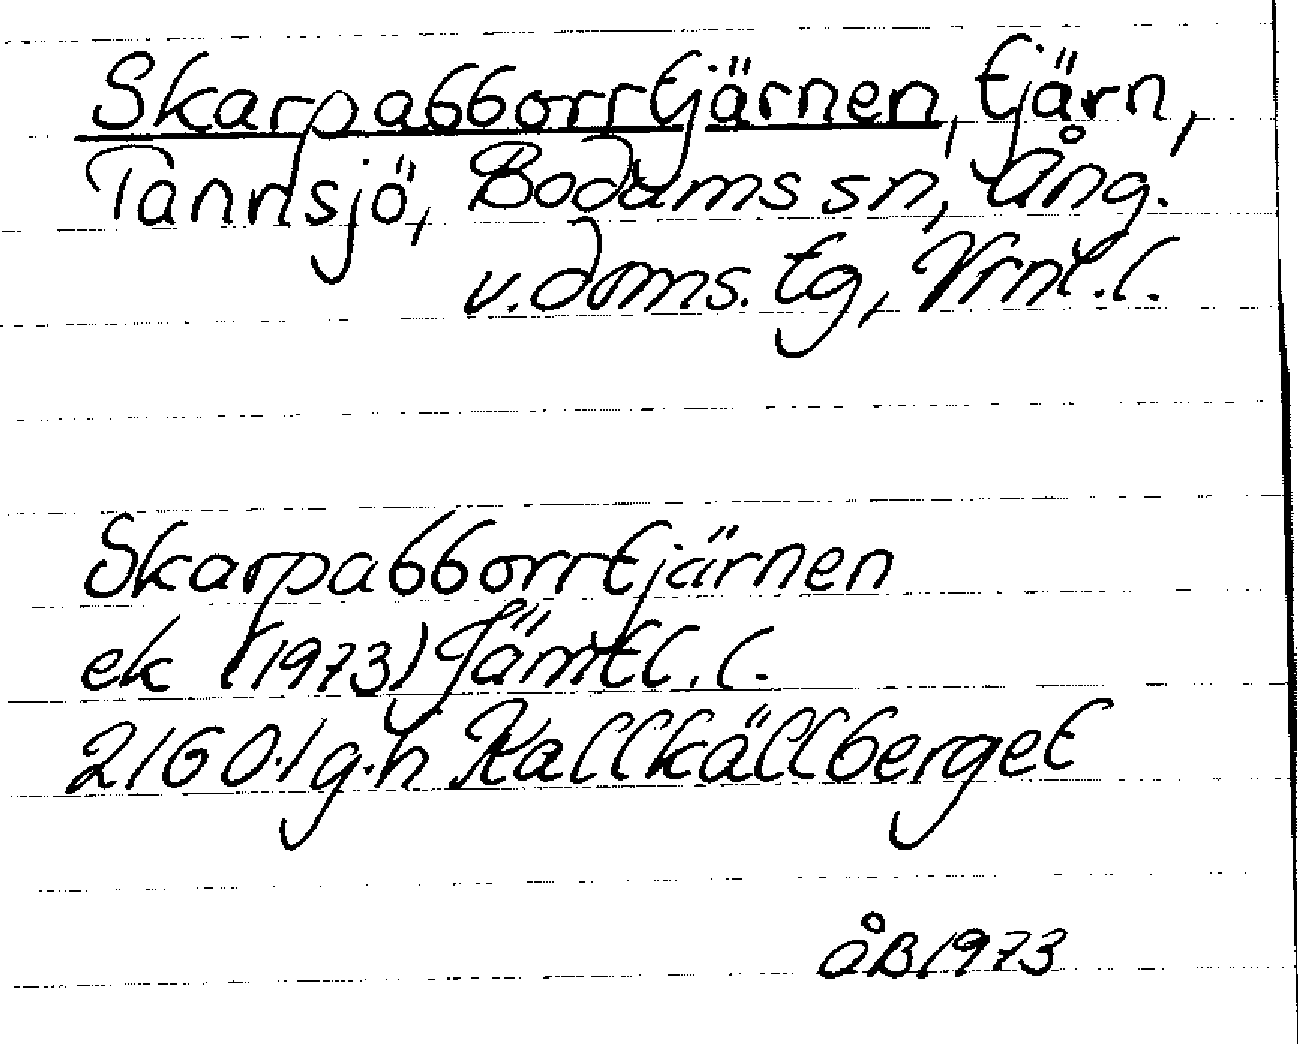 Skarpabborrtjärnen, tjärn,
Tannsjö, Bodums sn, Ång.
v. doms. tg, Vrnl. l.
Skarpabborrtjärnen
ek (1973) Jämtl. l.
2160.1 g.h Kallkällberget
ÅB 1973